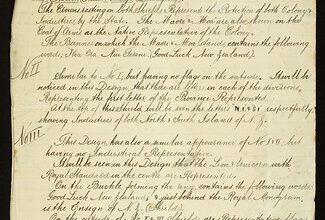 (The Crowns resting on Both Shields Represent the Protection of both Colony &
Industries by the State. The Maori & Moa are also shown on the
Coat of Arms as the Native Representative of the Colony.
The Banner on which the Maori & Moa Stand, contains the following
words, New Era. New Career. (Good Luck New Zealand).
No II
Similar to No I, but having no flags on the outside. It will be
noticed in this Design, that there are letters in each of the divisions,
Representing the first letter of the Province Represented.
At the top of this Shield will be seen the letters N.I & S.I respectfully
shewing Industries of both North & South Island of N.Z.
No III
This Design has also a similar appearance of No I & II, but
having no Industrial Representation.
It will be seen in this Design that the Lion & Unicorn with
Royal Standard in the centre are Represented.
On the Buckle forming the ring, contains the following words
Good Luck, New Zealand; & just behind the Royal Monogram,
is the Ensign of N.Z. (Shield)
On the outside of No I & III Shields are Representative flags